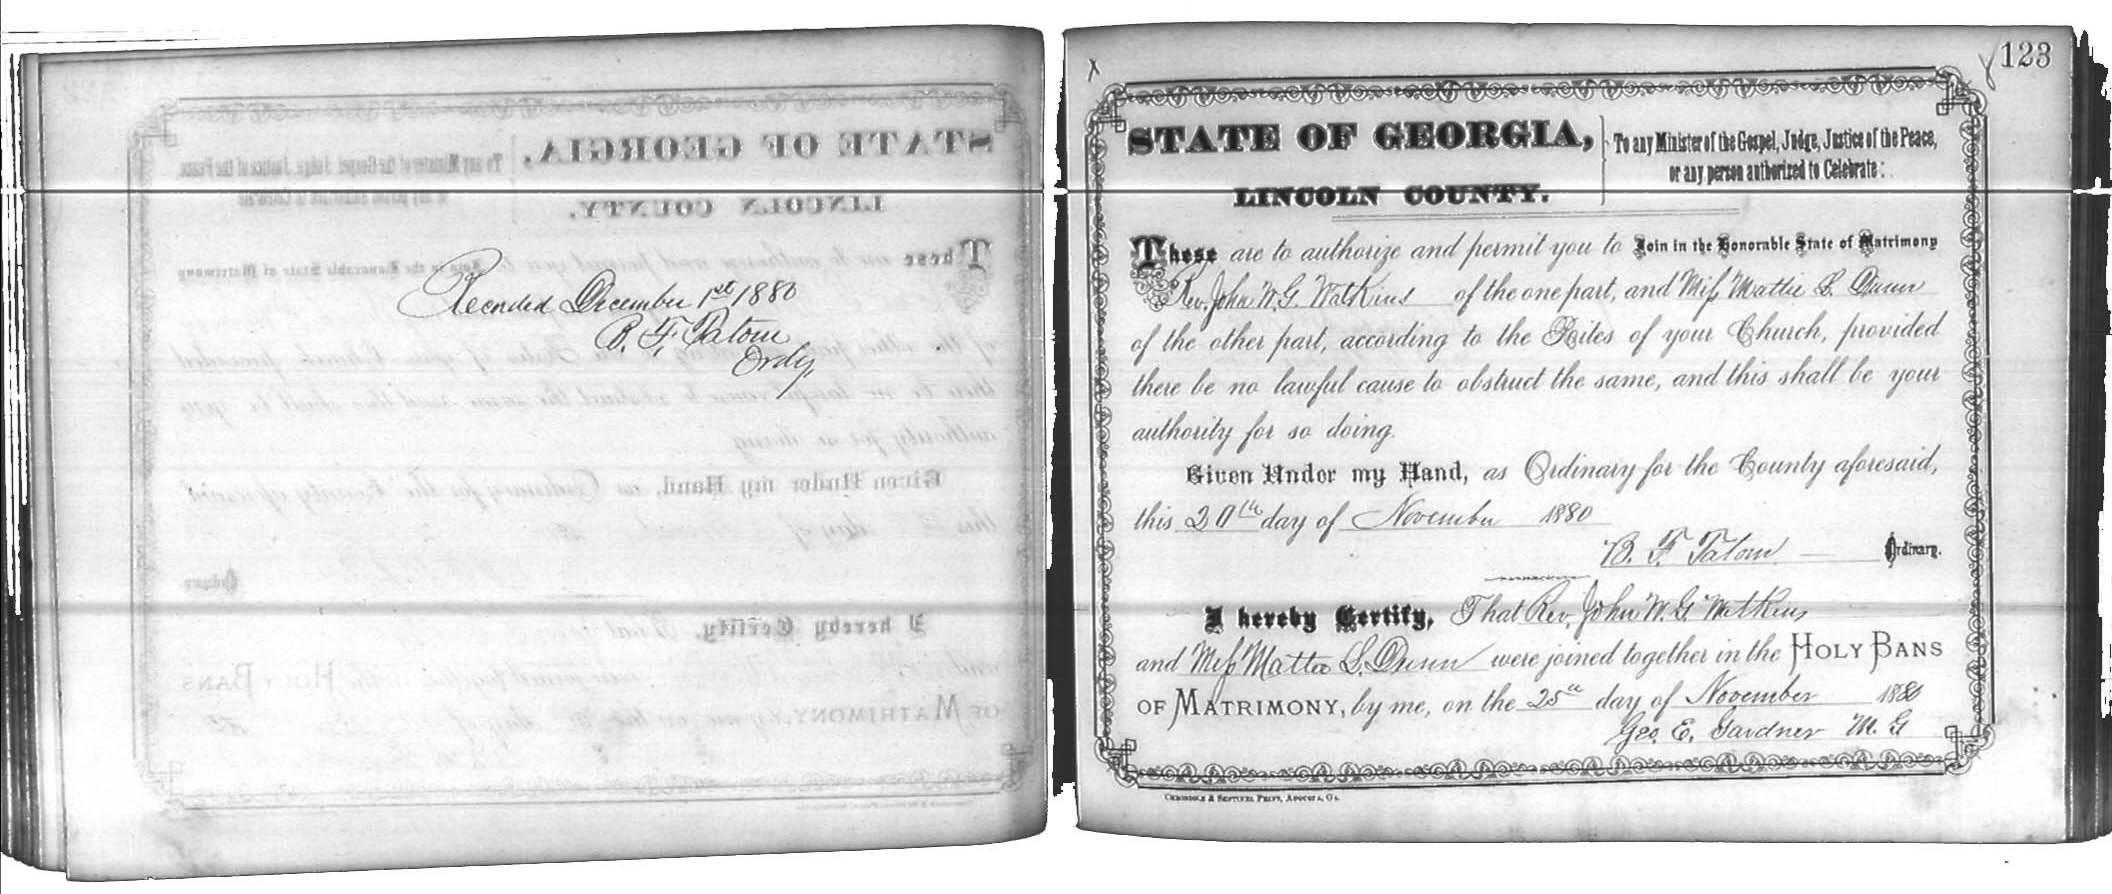 Recorded December 1st 1880
B. F. Tatom
Ordy,
X
123
STATE OF GEORGIA,
LINCOLN COUNTY.
To any Minister of the Gospel, Judge, Justice of the Peace,
or any person authorized to Celebrate:
These are to authorize and permit you to Join in the Honorable State of Matrimony
Rev. John W. G. Watkins of the one part, and Miss Mattie S. Dunn
of the other part, according to the Rites of your Church, provided
there be no lawful cause to obstruct the same, and this shall be your
authority for so doing.
Given Under my Hand, as Ordinary for the County aforesaid,
this 20th day of November 1880
B. F. Tatom Ordinary.
I hereby Certify, That Rev. John W. G. Watkins
and Miss Mattie S. Dunn were joined together in the HOLY BANS
OF MATRIMONY, by me, on the 25th day of November 1880
Geo. E. Gardner M. G
CHRONICLE & SENTINEL PRINT, AUGUSTA, GA.